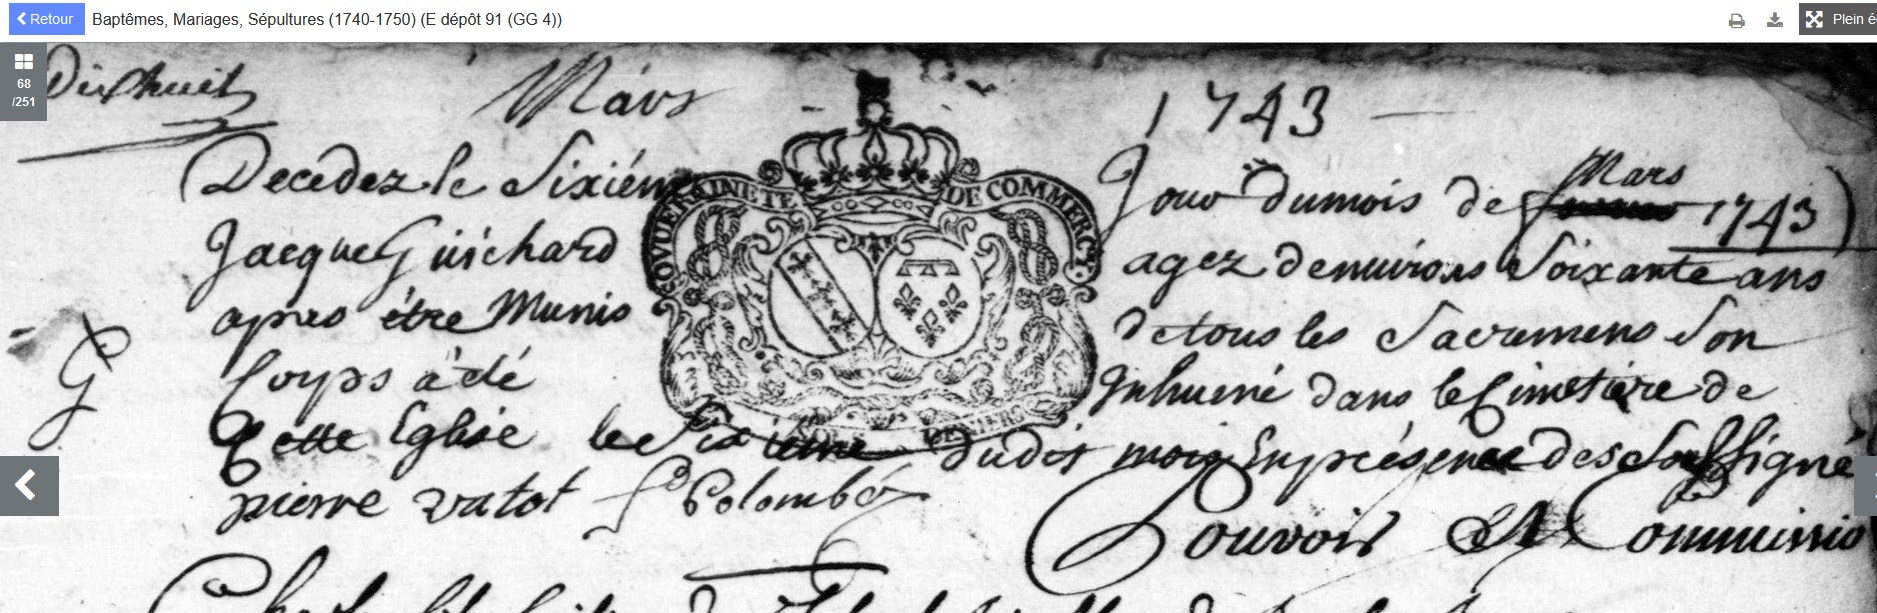 Retour Baptêmes, Mariages, Sépultures (1740-1750) (E dépôt 91 (GG 4)) Plein é
68
/251
Dixhuit Mars 1743
Decedez le Sixiém Jour dumois de Mars 1743)
SOUVERAINETE DE COMMERCY
Jacque Guichard agez denuirons Soixante ans
apres être Munis detous les Sacremens Son
Corps à dé Inhumé dans le Cimetiere de
Cette Eglise le Sixieme dudit mois En présence des Soussigné
pierre vatot
Pouvoir Et Commissio